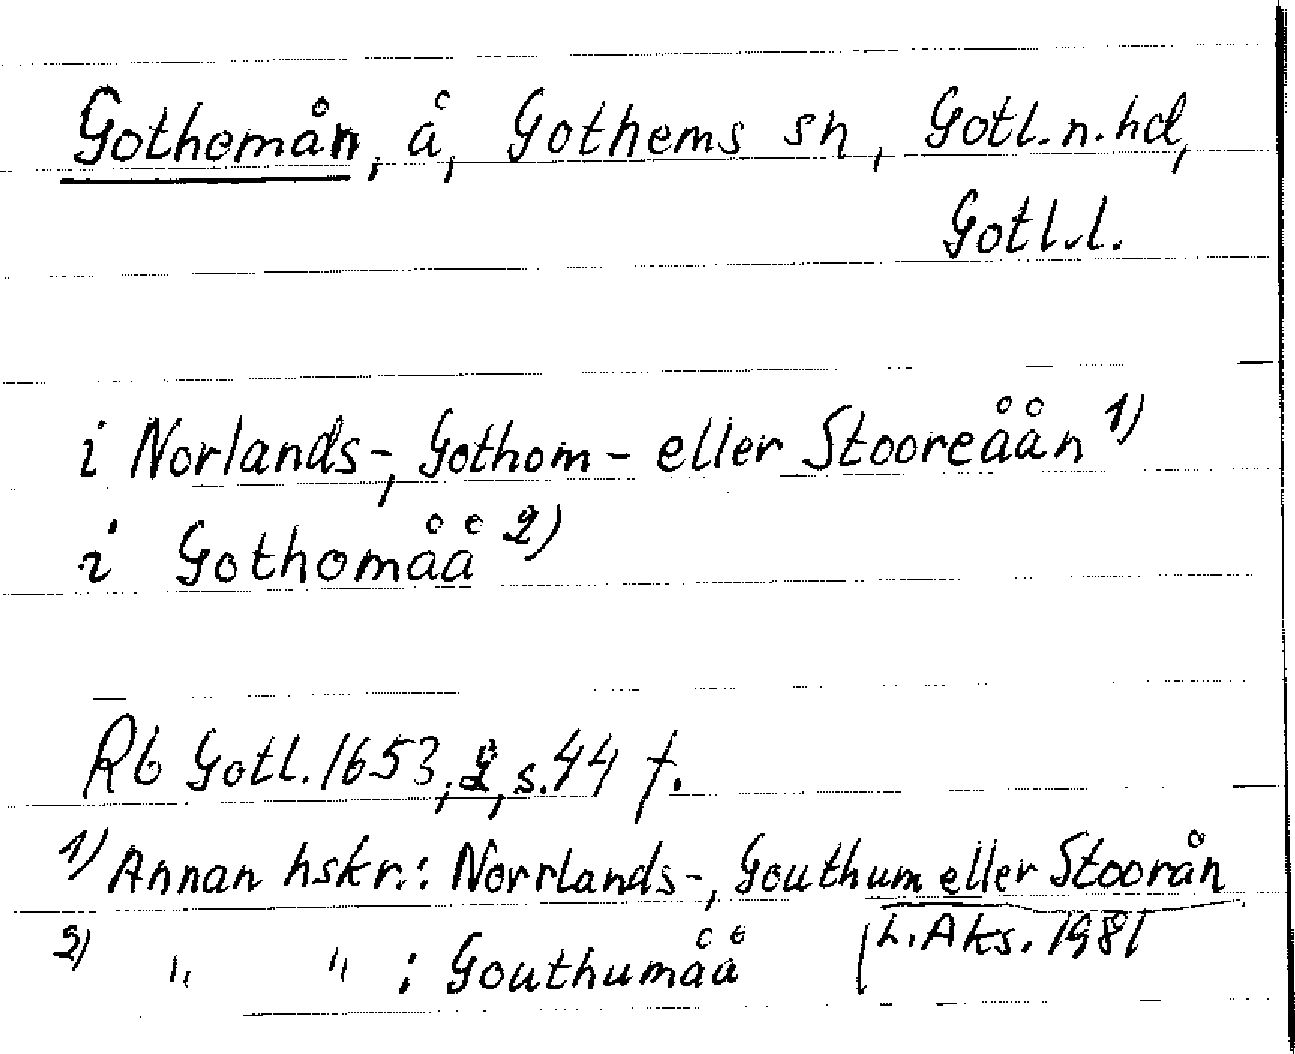 Gothomån, å, Gothems sn, Gotl. n. hd,
Gotl. l.
i Norlands-, Gothom- eller Stooreåån 1)
i Gothomåå 2)
Rb Gotl. 1653; 2, s. 44 f.
1) Annan hskr.: Norrlands-, Gouthum eller Stoorån
2) " " : Gouthumåå
L. Aks. 1981